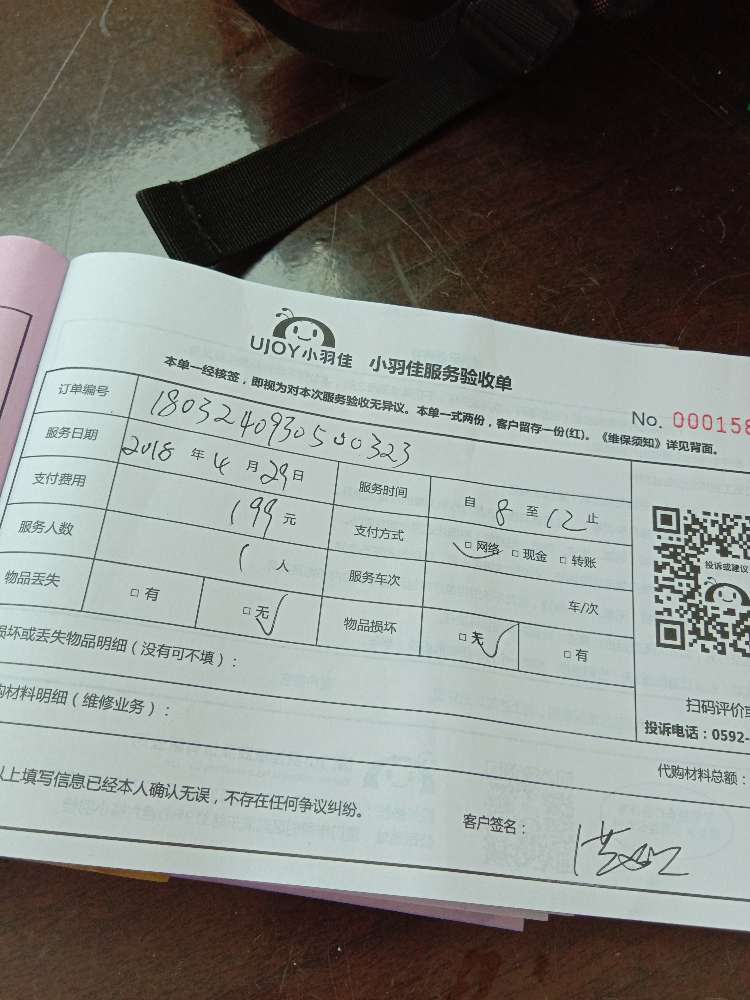 UJOY小羽佳 小羽佳服务验收单
本单一经核签，即视为对本次服务验收无异议。本单一式两份，客户留存一份(红)。《维保须知》详见背面。
No. 000158
订单编号 1803240930500323
服务日期 2018 年 4 月 29 日 服务时间 自 8 至 12 止
支付费用 199 元 支付方式 □ 网络 □ 现金 □ 转账
服务人数 1 人 服务车次 车/次
物品丢失 □ 有 □ 无 物品损坏 □ 无 □ 有
投诉或建议
损坏或丢失物品明细（没有可不填）：
扫码评价或
购材料明细（维修业务）：
投诉电话：0592-
代购材料总额：
以上填写信息已经本人确认无误，不存在任何争议纠纷。
客户签名：